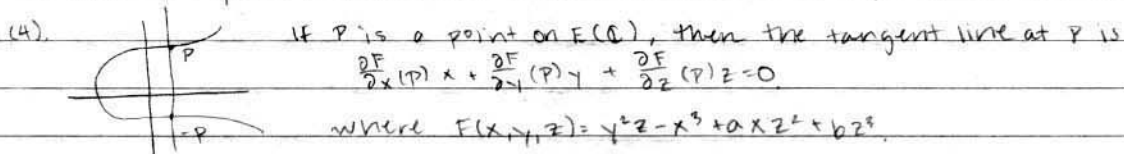 (4). If P is a point on E(ℂ), then the tangent line at P is
∂F/∂x (P) x + ∂F/∂y (P) y + ∂F/∂z (P) z = 0
where F(x,y,z) = y²z - x³ + axz² + bz³.
P
-P